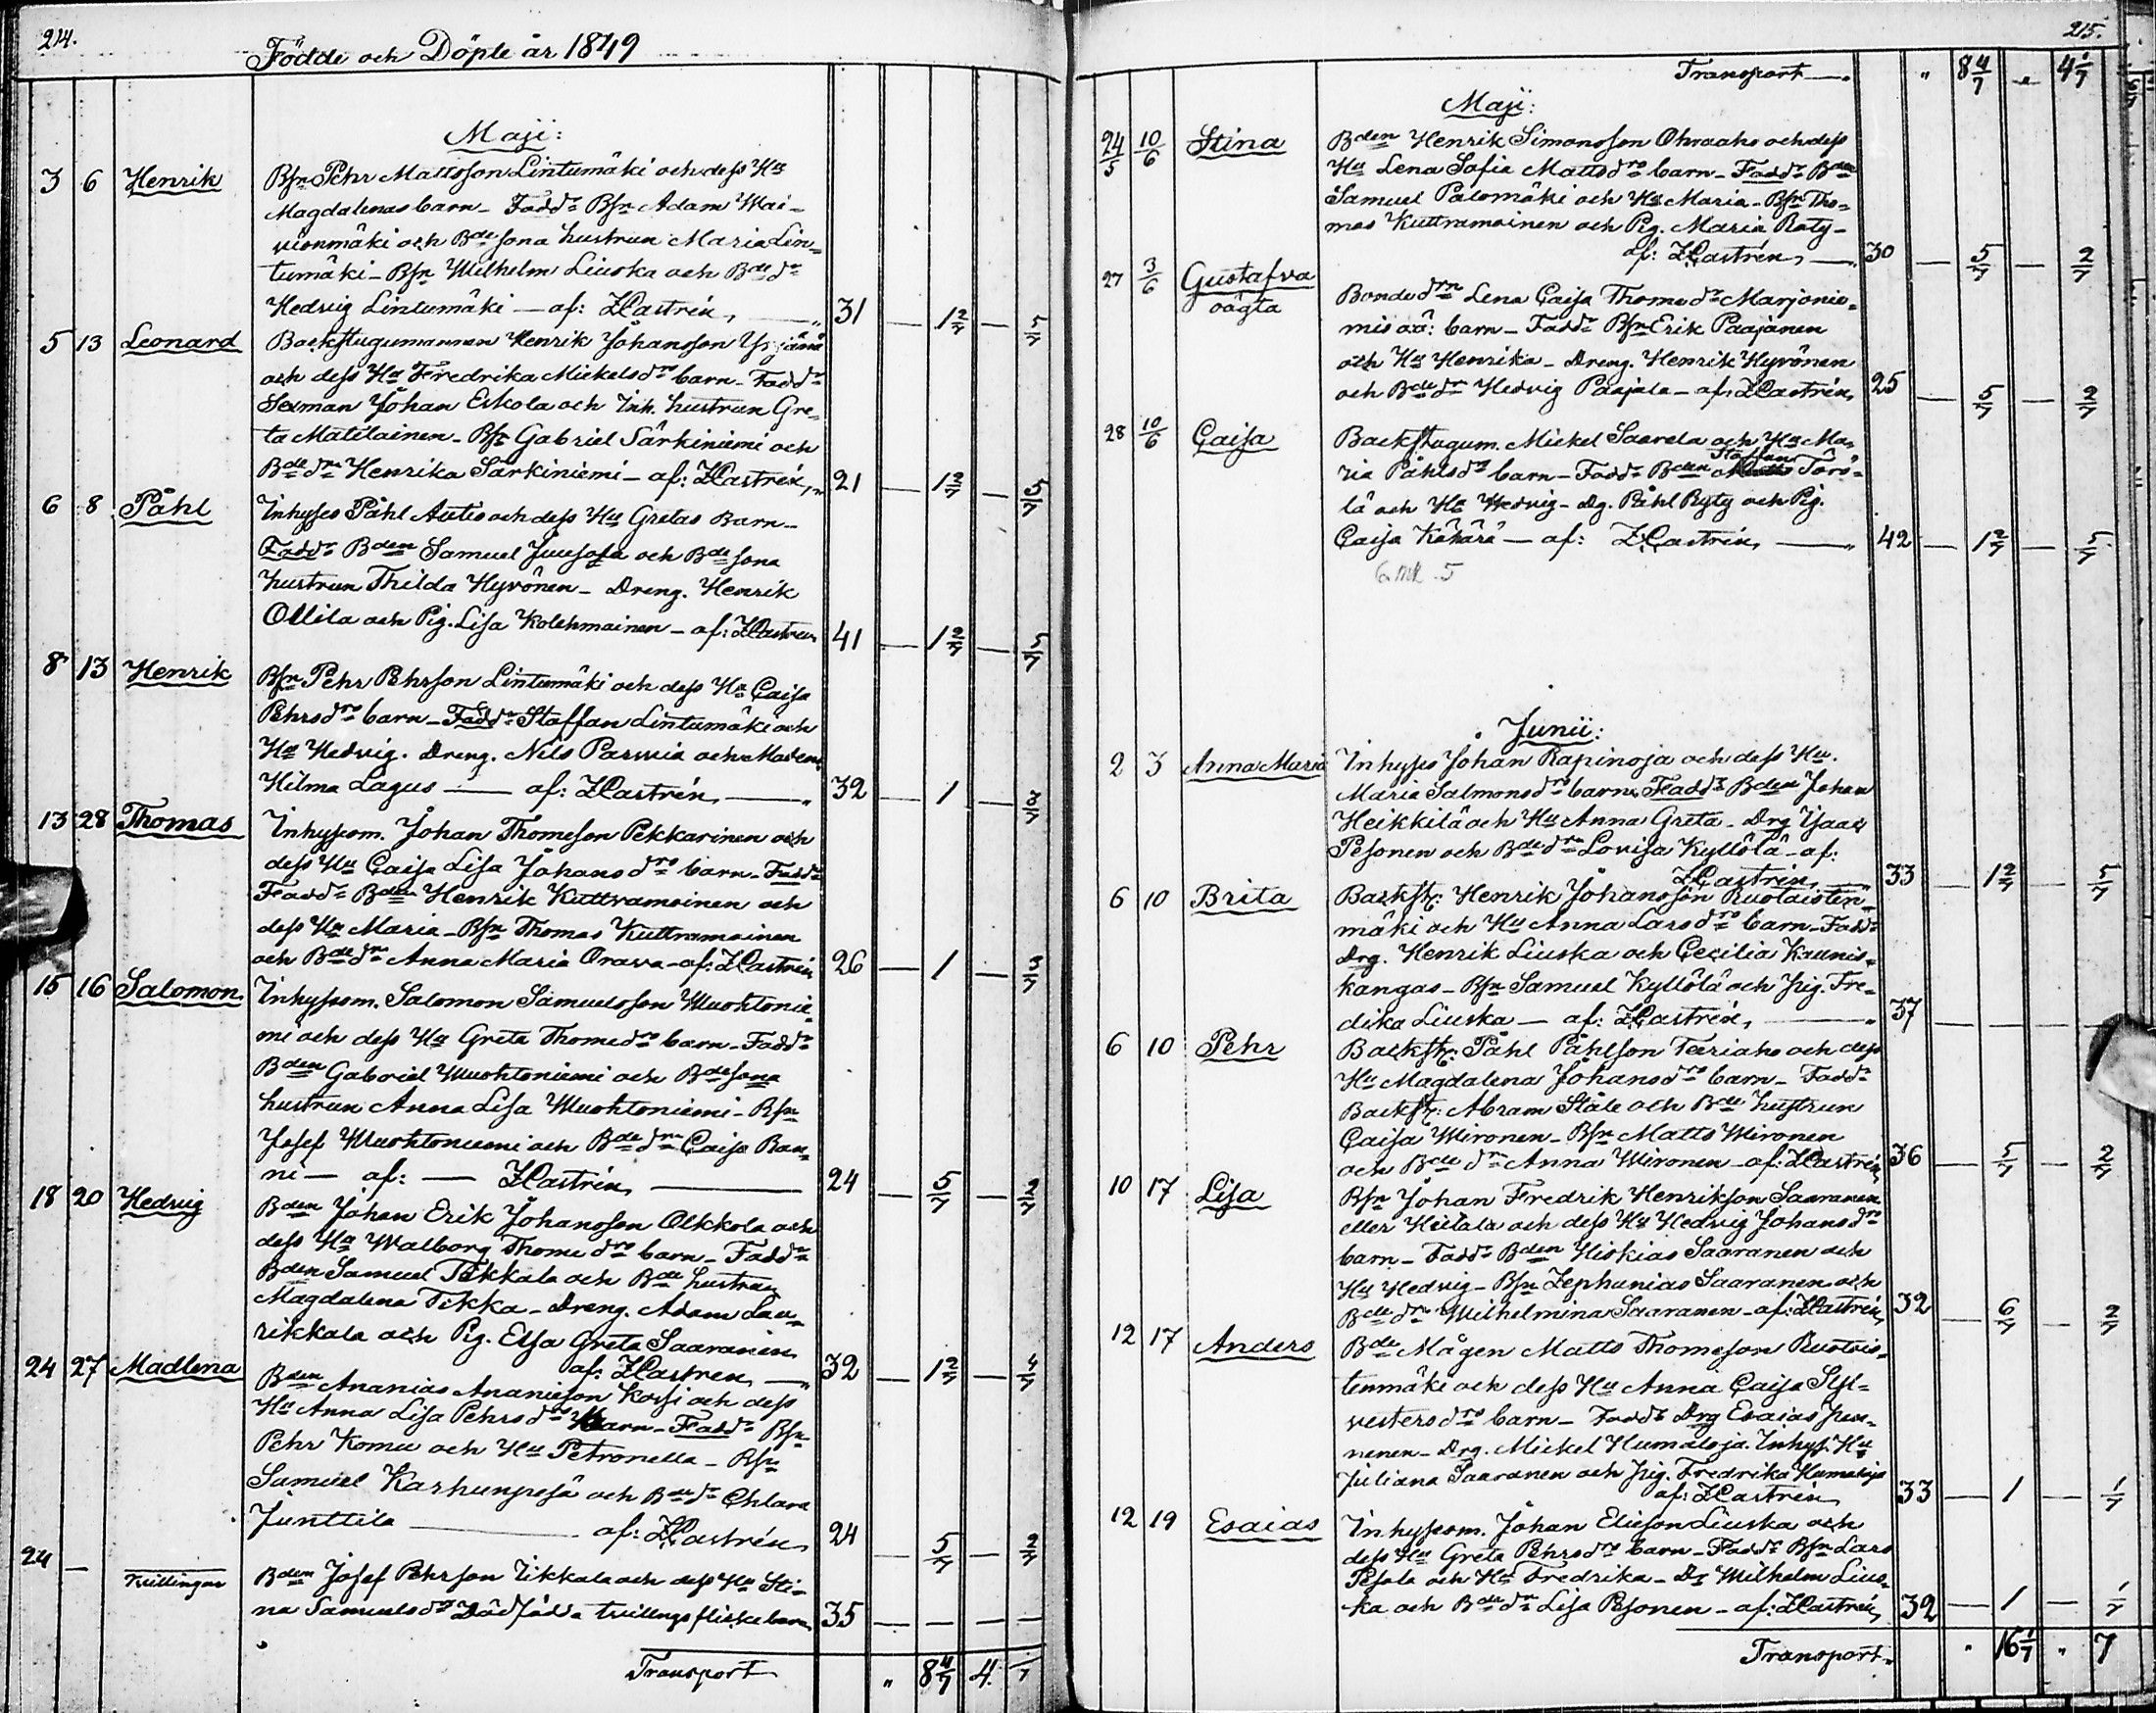 214.
Födde och Döpte år 1849
Maji:
3 6 Henrik Bsn Pehr Mattsson Lintumäki och dess Hu
Magdalenas barn - Faddr Bsn Adam Wai-
vionmäki och Bdesona hustrun Maria Lin=
tumäki - Bsn Wilhelm Liuska och Bdedr
Hedvig Lintumäki - af: ZCastrén, 31 - 1 2/7 - 5/7
5 13 Leonard Backstugumannen Henrik Johansson
och dess Hu Fredrika Mickelsdrs barn - Faddr
Sexman Johan Eskola och Inh. hustrun Gre=
ta Matilainen - Bsn Gabriel Särkiniemi och
Bdedrn Henrika Särkiniemi - af: ZCastrén, 21 - 1 2/7 -
6 8 Påhl Inhyses Påhl Autio och dess Hu Gretas Barn -
Faddr Bden Samuel Juusola och Bdesona
hustrun Thilda Hyvönen - Dreng. Henrik
Ollila och Pig. Lisa Kolehmainen - af: ZCastren 41 - 1 2/7 - 5/7
8 13 Henrik Bsn Pehr Pehrson Lintumäki och dess Hu Caisa
Pehrsdrs barn - Faddr Staffan Lintumäki och
Hu Hedvig. Dreng. Nils Parvia och Madem.
Hilma Lagus - af: ZCastrén, 32 - 1 -
13 28 Thomas Inhysesm. Johan Thomeson Pekkarinen och
dess Hu Caisa Lisa Johansdrs barn - Faddr
Faddr Bden Henrik Kuttramoinen och
dess Hu Maria - Bsn Thomas Kuttramoinen
och Bdedrn Anna Maria Orava - af: ZCastrén 26 - 1 -
15 16 Salomon. Inhysesm. Salomon Samuelsson Muohtonie=
mi och dess Hu Greta Thomedrs barn - Faddr
Bden Gabriel Muohtoniemi och Bdesona
hustrun Anna Lisa Muohtoniemi - Bsn
Josef Muohtoniemi och Bdedrn Caisa Ran=
ni - af: - ZCastrén, 24 - 5/7 - 2/7
18 20 Hedvig Bden Johan Erik Johansson Olkkola och
dess Hu Walborg Thomedrs barn - Faddr
Bden Samuel Tikkala och Bde hustrun
Magdalena Tikka - Dreng. Adam Lau=
rikkala och Pig. Elsa Greta Saaranen
af: ZCastren, 32 - 1 2/7 - 4/7
24 27 Madlena Bden Ananias Ananiason Korsi och dess
Hu Anna Lisa Pehrsdrs barn - Faddr Bsn
Pehr Komu och Hu Petronella - Bsn
Samuel Karhunpesä och Bdedr Chlara
Junttila - af: ZCastrén, 24 - 5/7 - 2/7
24 - Tvillingar Bden Josef Pehrson Tikkala och dess Hu Sti=
na Samuelsdrs Dödfödda tvillingsflickebarn, 35 - - - -
Transport „ 8 4/7 4. 1/7
215.
Transport - „ 8 4/7 „ 4 1/7
Maji:
24/5 10/6 Stina Bden Henrik Simonsson Ohraaho och dess
Hu Lena Sofia Mattsdrs barn - Faddr Bden
Samuel Palomäki och Hu Maria - Bsn Tho=
mas Kuttramoinen och Pig. Maria Raty -
af: ZCastrén, 30 - 5/7 - 2/7
27 3/6 Gustafva
oägta Bondedrn Lena Caisa Thomedr Marjonie=
mis oä: barn - Faddr Bsn Erik Paajanen
och Hu Henrika - Dreng. Henrik Hyvönen
och Bdedr Hedvig Paajala - af: ZCastrén, 25 - 5/7 - 2/7
28 10/6 Caisa Backstugum. Mickel Saarela och Hu Ma=
ria Påhlsdrs barn - Faddr Bden Staffan Törö=
lä och Hu Hedvig - Dg. Påhl Ryty och Pig.
Caisa Kähärä - af: ZCastrén, 42 - 1 2/7 - 5/7
Junii:
2 3 Anna Maria Inhyses Johan Rapinoja och dess Hu.
Maria Salmonsdrs barn. Faddr Bden Johan
Heikkilä och Hu Anna Greta - Drg Isaac
Pesonen och Bdedrn Lovisa Kyllölä - af:
ZCastrén, 33 - 1 2/7 - 5/7
6 10 Brita Backst: Henrik Johansson Ruotaisten=
mäki och Hu Anna Larsdrs barn - Faddr
Drg. Henrik Liuska och Cecilia Kaunis=
kangas - Bsn Samuel Kyllölä och Pig. Fre=
dika Liuska - af: ZCastrén, 37 - - - -
6 10 Pehr Backst: Påhl Påhlson Teeriaho och dess
Hu Magdalena Johansdrs barn - Faddr
Backst: Abram Ståle och Bde hustrun
Caisa Mironen - Bsn Matts Mironen
och Bdedrn Anna Mironen - af: ZCastrén, 36 - 5/7 - 2/7
10 17 Lisa Bsn Johan Fredrik Henrikson Saaranen
eller Hiitala och dess Hu Hedvig Johansdrs
barn - Faddr Bden Hiskias Saaranen och
Hu Hedvig - Bsn Zephanias Saaranen och
Bdedrn Wilhelmina Saaranen - af: ZCastrén, 32 - 6/7 - 2/7
12 17 Anders Bde Mågen Matts Thomeson Ruotais=
tenmäki och dess Hu Anna Caisa Syl=
vestersdrs barn - Faddr Drg Esaias Jun=
nenen - Drg. Mickel Humaloja. Inhys. Hu
Juliana Saaranen och Pig. Fredrika Humaloja
af: ZCastrén 33 - 1 - 1/7
12 19 Esaias Inhysesm. Johan Elieson Liuska och
dess Hu Greta Pehrsdrs barn - Faddr Bsn Lars
Pesola och Hu Fredrika - Dr Wilhelm Lius=
ka och Bdedr Lisa Pesonen - af: ZCastrén, 32 - 1 - 1/7
Transport. „ 16 1/7 „ 7